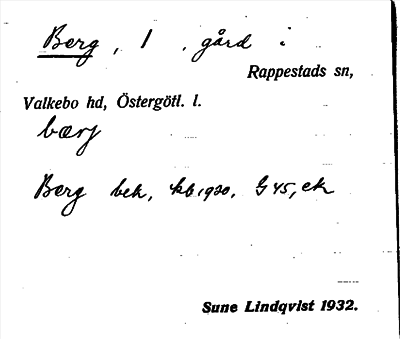 Berg, 1 gård i
Rappestads sn,
Valkebo hd, Östergötl. l.
bærj
Berg bek, kb 1920, G 45, ek
Sune Lindqvist 1932.